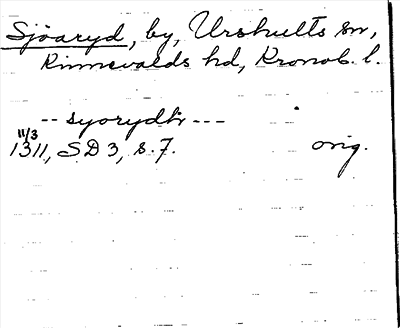 Sjöaryd, by, Urshults sn,
Kinnevalds hd, Kronob. l.
-- syorydh ---
11/3
1311, SD 3, s. 7. orig.